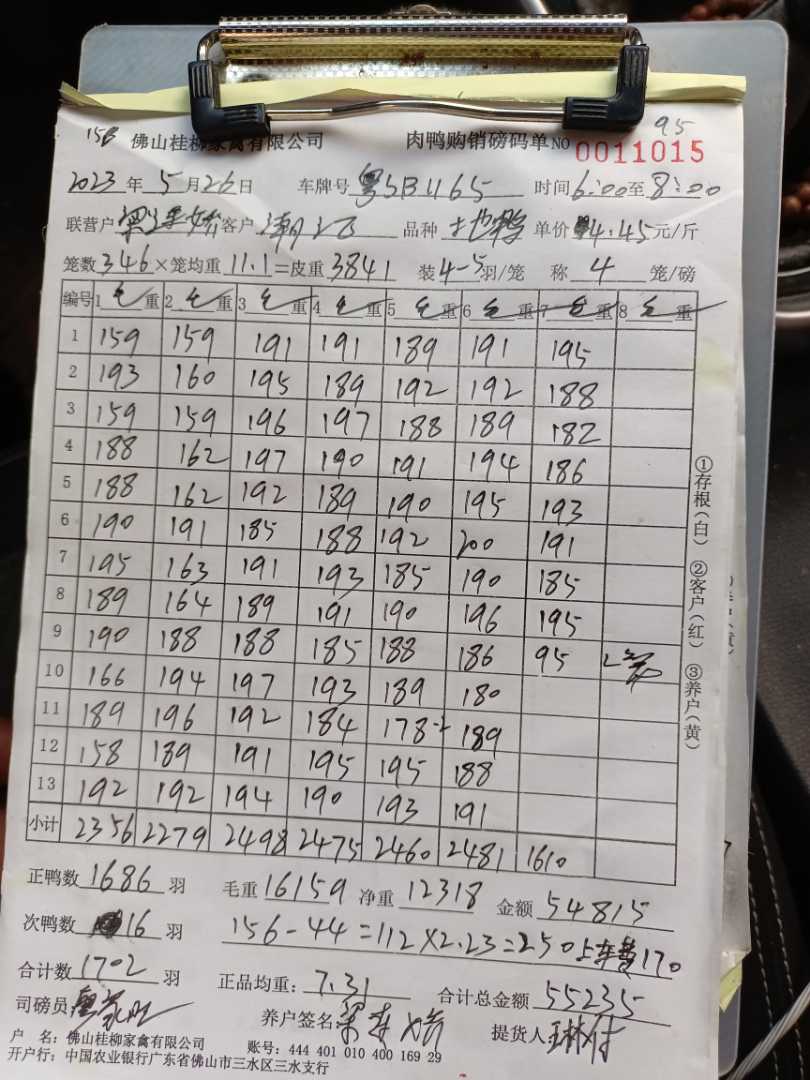 15B 佛山桂柳家禽有限公司 肉鸭购销磅码单 NO 0011015 95
2023年5月26日 车牌号 粤SBU465 时间6:00至8:00
联营户 客户 品种 土也鸭 单价 4.45元/斤
笼数346×笼均重11.1=皮重3841 装4-5羽/笼 称4笼/磅
编号 1毛重 2毛重 3毛重 4毛重 5毛重 6毛重 7毛重 8毛重
1 159 159 191 191 189 191 195
2 193 160 195 189 192 192 188
3 159 159 196 197 188 189 182
4 188 162 197 190 191 194 186
5 188 162 192 189 190 195 193
6 190 191 185 188 192 200 191
7 195 163 191 193 185 190 185
8 189 164 189 191 190 196 195
9 190 188 188 185 188 186 95 2笼
10 166 194 197 193 189 180
11 189 196 192 184 178 189
12 158 189 191 195 195 188
13 192 192 194 190 193 191
小计 2356 2279 2498 2475 2460 2481 1610
正鸭数1686羽 毛重16159 净重12318 金额54815
次鸭数16羽 156-44=112×2.23=250 上车费170
合计数1702羽 正品均重:7.31 合计总金额55235
司磅员 养户签名 提货人
户 名:佛山桂柳家禽有限公司 账号:444 401 010 400 169 29
开户行:中国农业银行广东省佛山市三水区三水支行
①存根(白) ②客户(红) ③养户(黄)